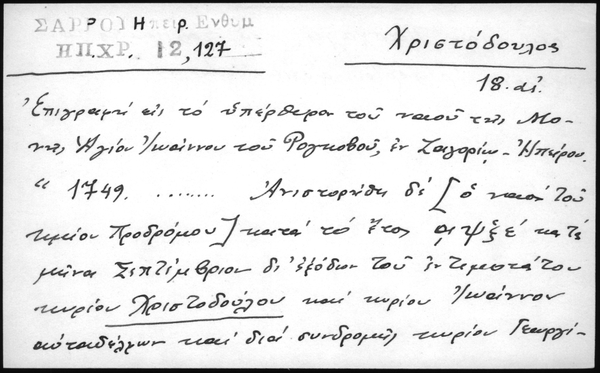 ΣΑΡΡΟΥ Ηπειρ. Ενθυμ
ΗΠ.ΧΡ. 12, 127
Χριστόδουλος
18. αἰ.
Ἐπιγραφή εἰς τό ὑπέρθυρον τοῦ ναοῦ τῆς Μο-
νῆς Ἁγίου Ἰωάννου τοῦ Ρογκοβοῦ, ἐν Ζαγορίῳ - Ἠπείρου.
“ 1749. ........ Ἀνιστορήθη δέ [ὁ ναός τοῦ
τιμίου Προδρόμου] κατά τό ἔτος κατά
μῆνα Σεπτέμβριον δι' ἐξόδων τοῦ ἐντιμοτάτου
κυρίου Χριστοδούλου καί κυρίου Ἰωάννου
αὐταδέλφων καί διά συνδρομῆς κυρίου Γεωργί-